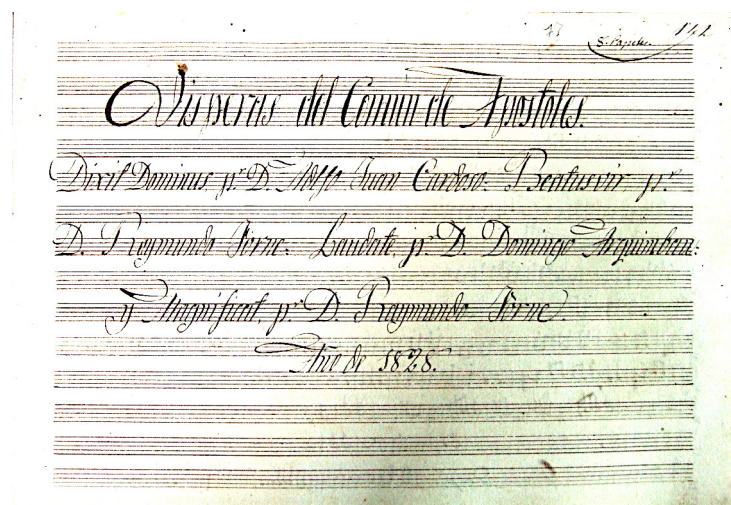 142
5. Papeles.
Visperas del Comun de Apostoles.
Dixit Dominus pr. D. Ildefso. Juan Cardoso. Beatus vir pr.
D. Raymundo Forne. Laudate, pr. D. Domingo Arquimbau:
y Magnificat, pr. D. Raymundo Forne.
Año de 1828.